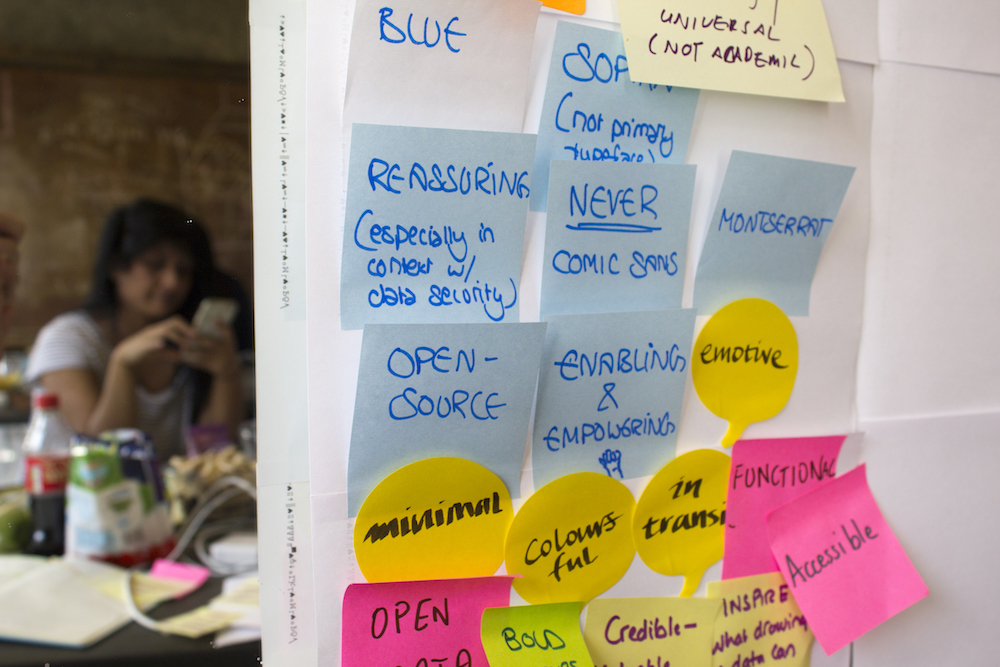 BLUE
UNIVERSAL
(NOT ACADEMIC)
(not primary
typeface)
REASSURING
(especially in
context w/
data security)
NEVER
COMIC SANS
MONTSERRAT
OPEN-
SOURCE
ENABLINGS
&
EMPOWERINGS
emotive
minimal
colours
ful
in
transi
FUNCTIONAL
Accessible
OPEN
DATA
BOLD
Credible-
INSPIRE
what drawing
data can